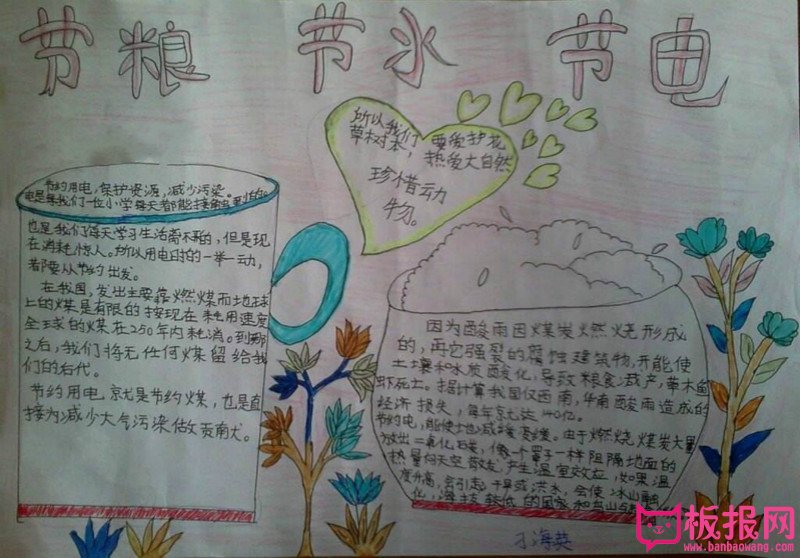 节粮 节水 节电
所以我们要爱护花
草树木，热爱大自然
珍惜动
物。
节约用电，保护资源，减少污染。
电是每我们一位小学每天都能接触
也是我们每天学习生活需不的，但是现
在消耗惊人。所以用电时的一举一动，
都要从节约出发。
在我国，发出主要靠燃煤而地球
上的煤是有限的按现在耗用速度
全球的煤在250年内耗消。到那
之后，我们将无任何煤留给我
们的后代。
节约用电就是节约煤，也是直
接为减少大气污染做贡南犬。
因为酸雨因煤炭燃烧形成
的，再它强裂的腐蚀建筑物，并能使
土壤和水质酸化，导致粮食减产，草木鱼
虾死亡。据计算我国仅西南，华南酸雨造成的
经济损失，每年就达140亿。
节约电，能使土也减缓变暖。由于燃烧煤炭大量
放出二氧化碳，像一个罩子一样阻隔地面的
热量向天空散放，产生温室效应，如果温
度升高，会引起干旱或洪水，会使冰山融
化，海拔较低的国家和
孙海英
板报网
www.banbaowang.com